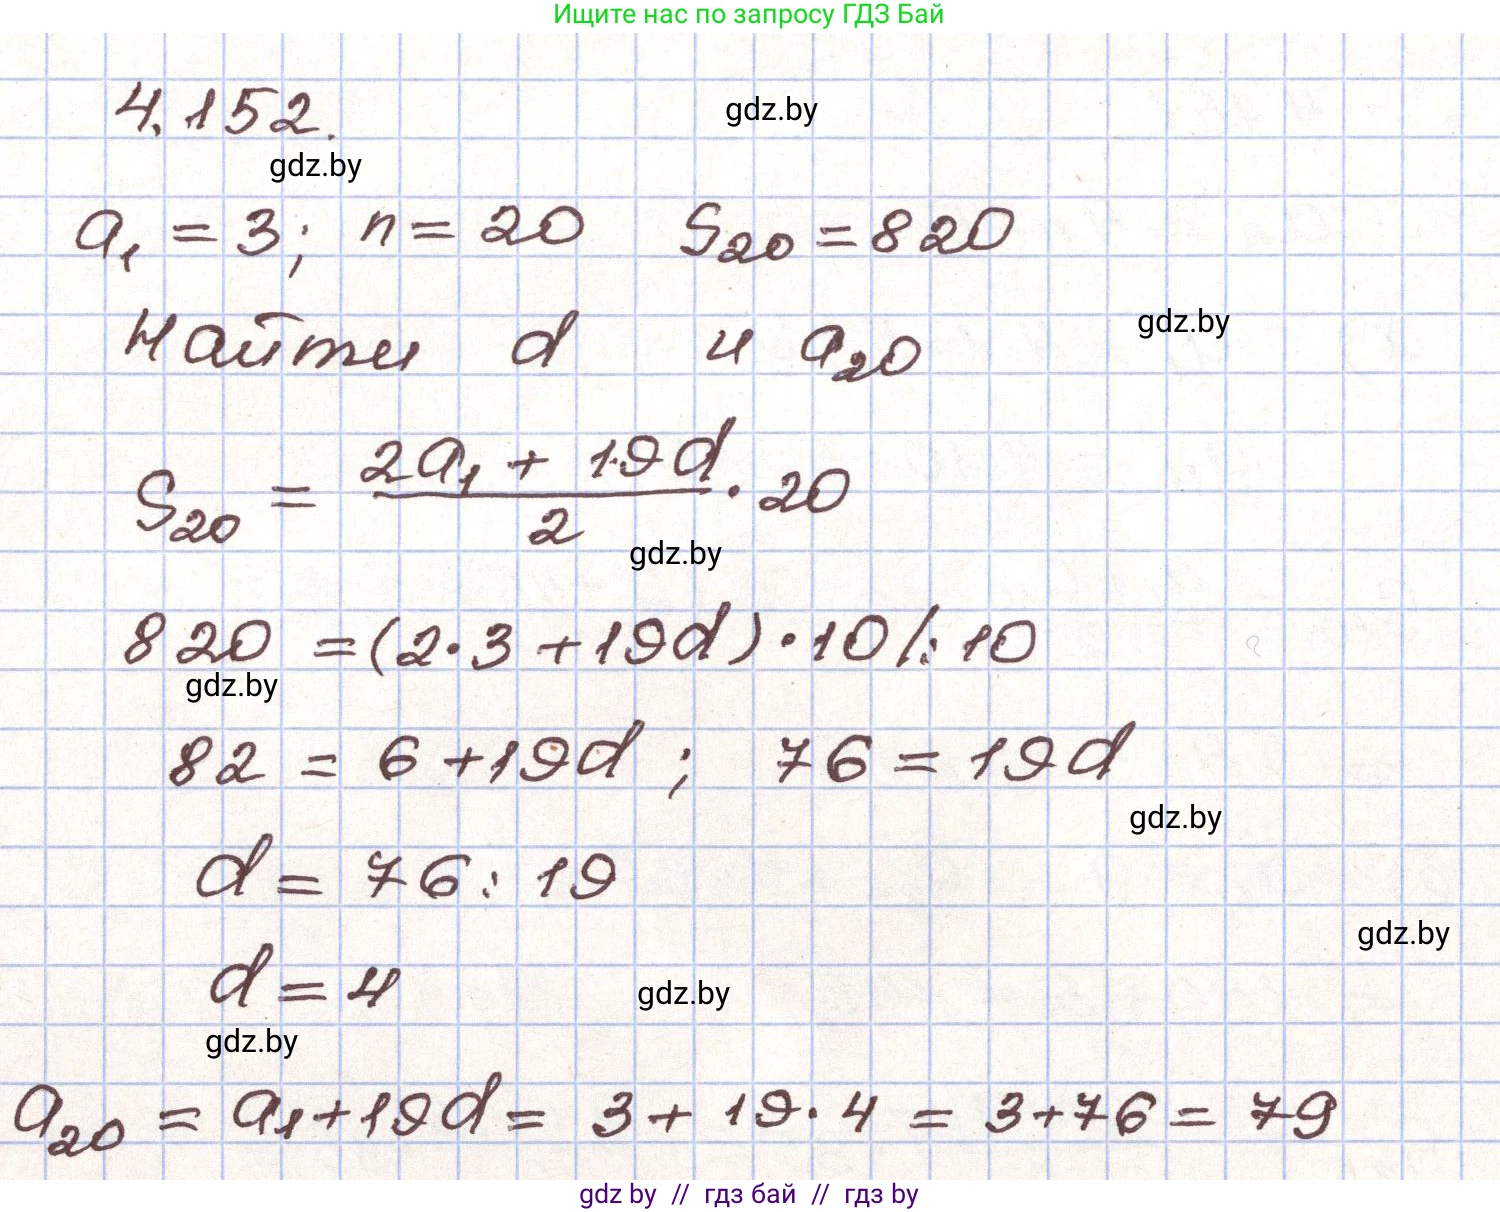 Ищите нас по запросу ГДЗ Бай
4.152.
gdz.by
gdz.by
a₁ = 3; n = 20 S₂₀ = 820
Найти d и a₂₀
gdz.by
S₂₀ = (2a₁ + 19d)/2 · 20
gdz.by
820 = (2·3 + 19d)·10 /:10
gdz.by
82 = 6 + 19d ; 76 = 19d
gdz.by
d = 76 : 19
gdz.by
d = 4
gdz.by
gdz.by
a₂₀ = a₁ + 19d = 3 + 19·4 = 3 + 76 = 79
gdz by // гдз бай // гдз by